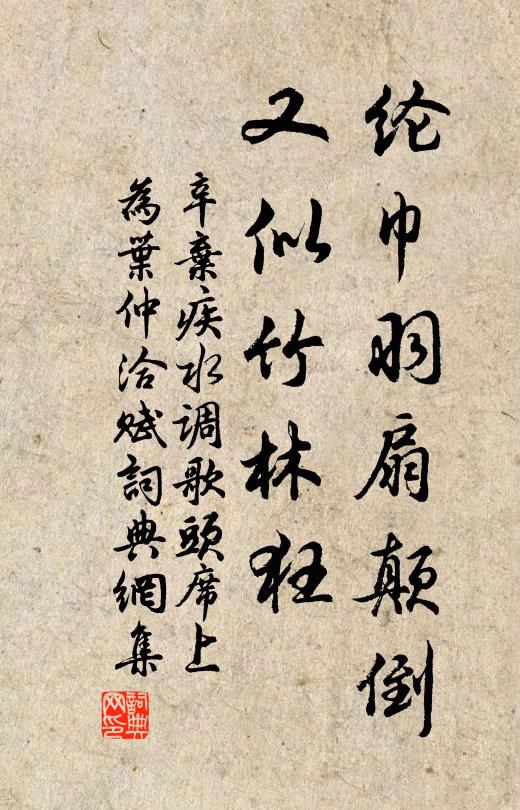 纶巾羽扇颠倒
又似竹林狂
辛棄疾水调歌頭席上
為葉仲洽赋詞典網集
詞典网印